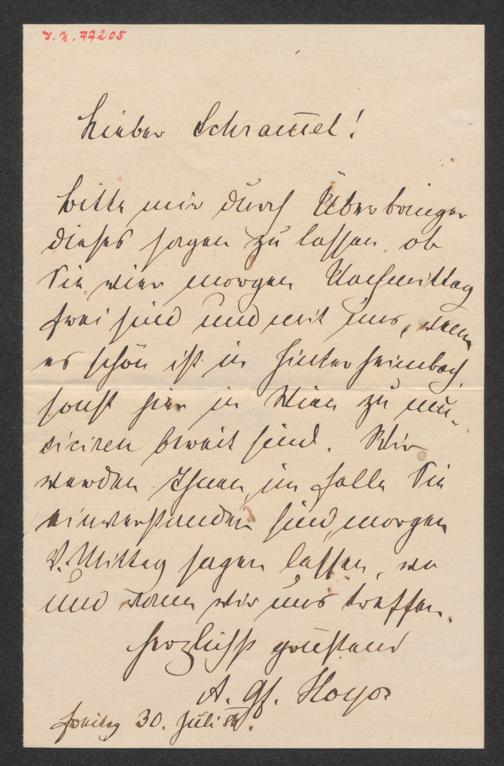 I. N. 77205
Lieber Schram̅el!
Bitte mir durch Überbringer
dieses sagen zu lassen, ob
Sie vier morgen Nachmittag
frei sind und mit uns, wenn
es schön ist in Hinterhainbach,
sonst hier in Wien zu mu-
siciren bereit sind. Wir
werden Ihnen, im Falle Sie
einverstanden sind, morgen
V. Mittag sagen lassen, wo
und wann wir uns treffen.
Herzlichst grüßend
A. Gf. Hoyos
Freitag 30. Juli